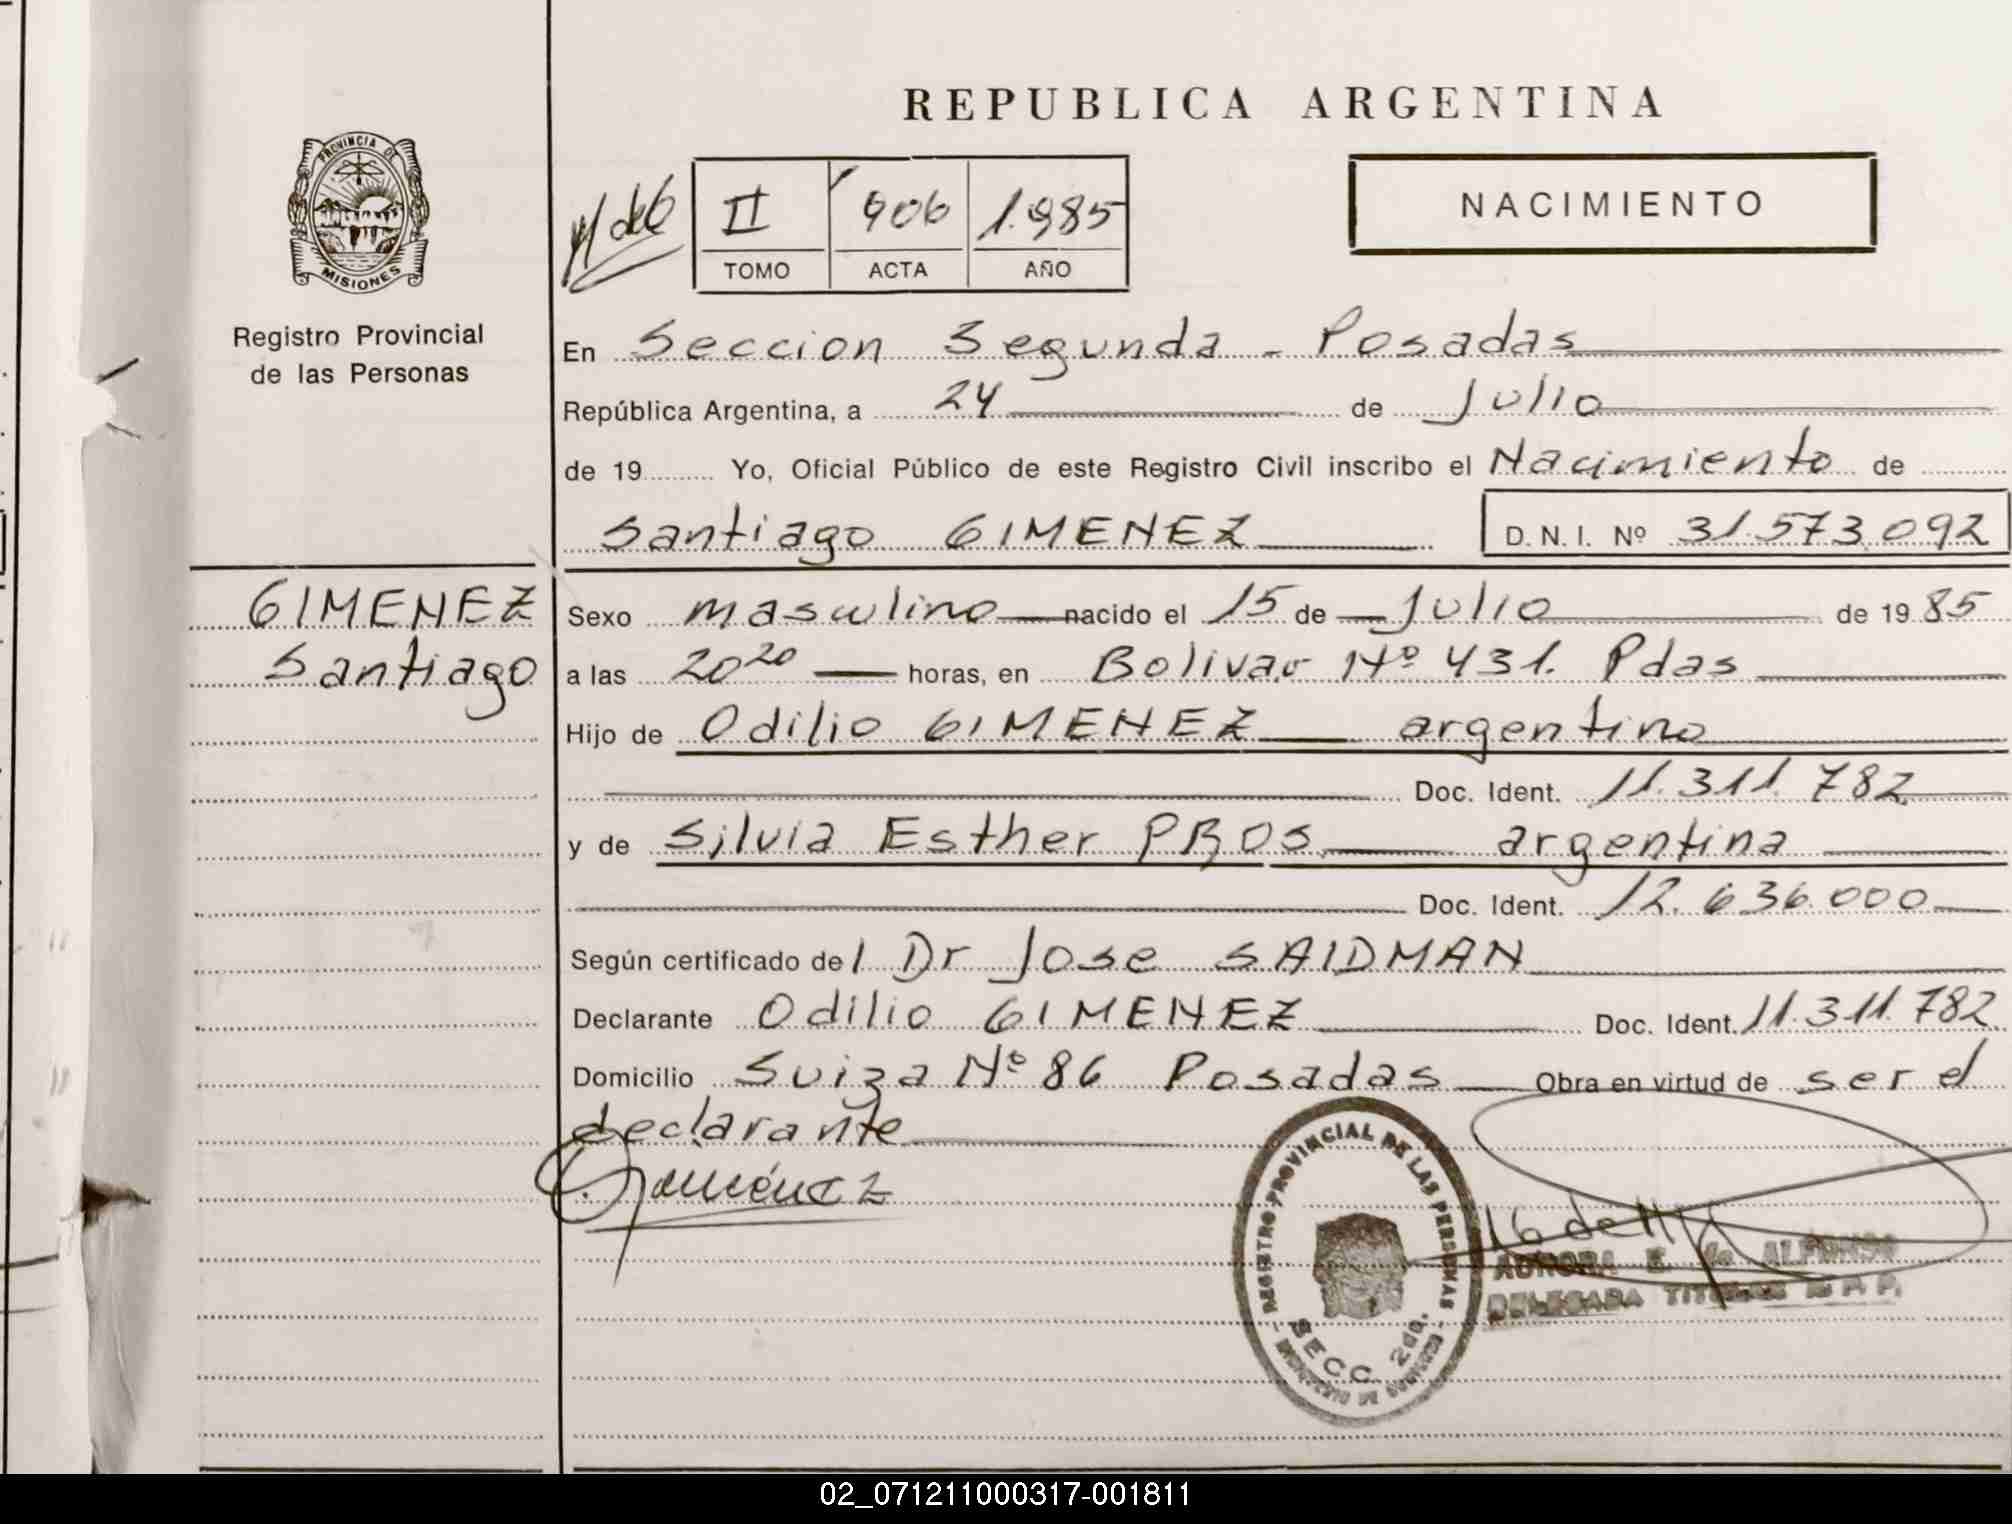 REPUBLICA ARGENTINA
PROVINCIA DE
MISIONES
Registro Provincial
de las Personas
II 906 1.985
TOMO ACTA AÑO
NACIMIENTO
En Seccion Segunda - Posadas
República Argentina, a 24 de Julio
de 19 Yo, Oficial Público de este Registro Civil inscribo el Nacimiento de
Santiago GIMENEZ D. N. I. Nº 31.573.092
GIMENEZ
Santiago
Sexo masculino nacido el 15 de Julio de 19 85
a las 20 20 horas, en Bolivar Nº 431. Pdas
Hijo de Odilio GIMENEZ argentino
Doc. Ident. 11.311.782
y de Silvia Esther PROS argentina
Doc. Ident. 12.636.000
Según certificado del Dr Jose SAIDMAN
Declarante Odilio GIMENEZ Doc. Ident. 11.311.782
Domicilio Suiza Nº 86 Posadas Obra en virtud de ser el
declarante
Giménez
REGISTRO PROVINCIAL DE LAS PERSONAS
SECC. 2da.
AURORA E. de ALFONSO
DELEGADA TITULAR
02_071211000317-001811